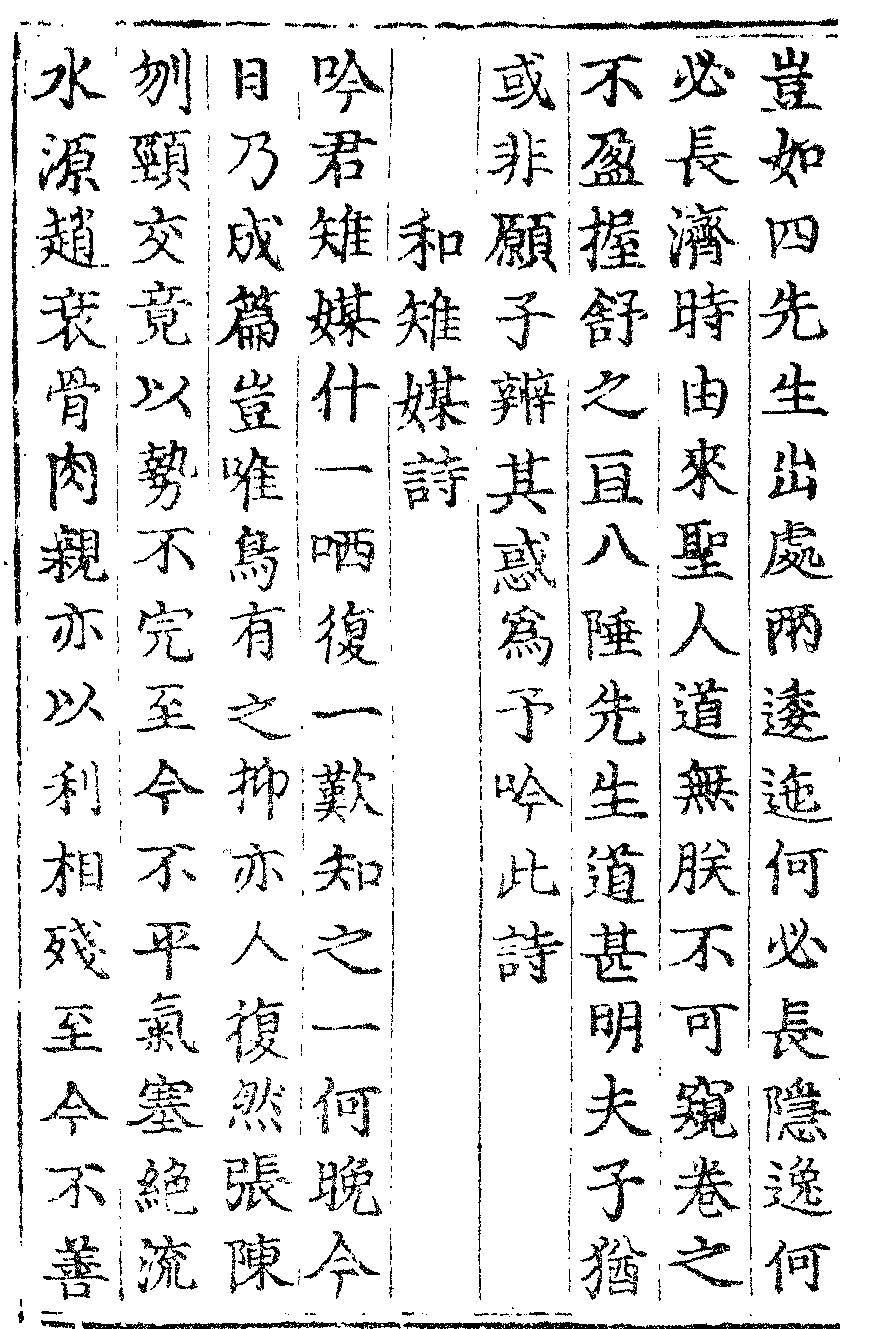 豈如四先生出處兩逶迤何必長隱逸何
必長濟時由來聖人道無朕不可窺卷之
不盈握舒之亘八陲先生道甚明夫子猶
或非願子辨其惑爲予吟此詩
和雉媒詩
吟君雉媒什一哂復一歎知之一何晚今
日乃成篇豈唯鳥有之抑亦人復然張陳
刎頸交竟以勢不完至今不平氣塞絕流
水源趙衰骨肉親亦以利相殘至今不善